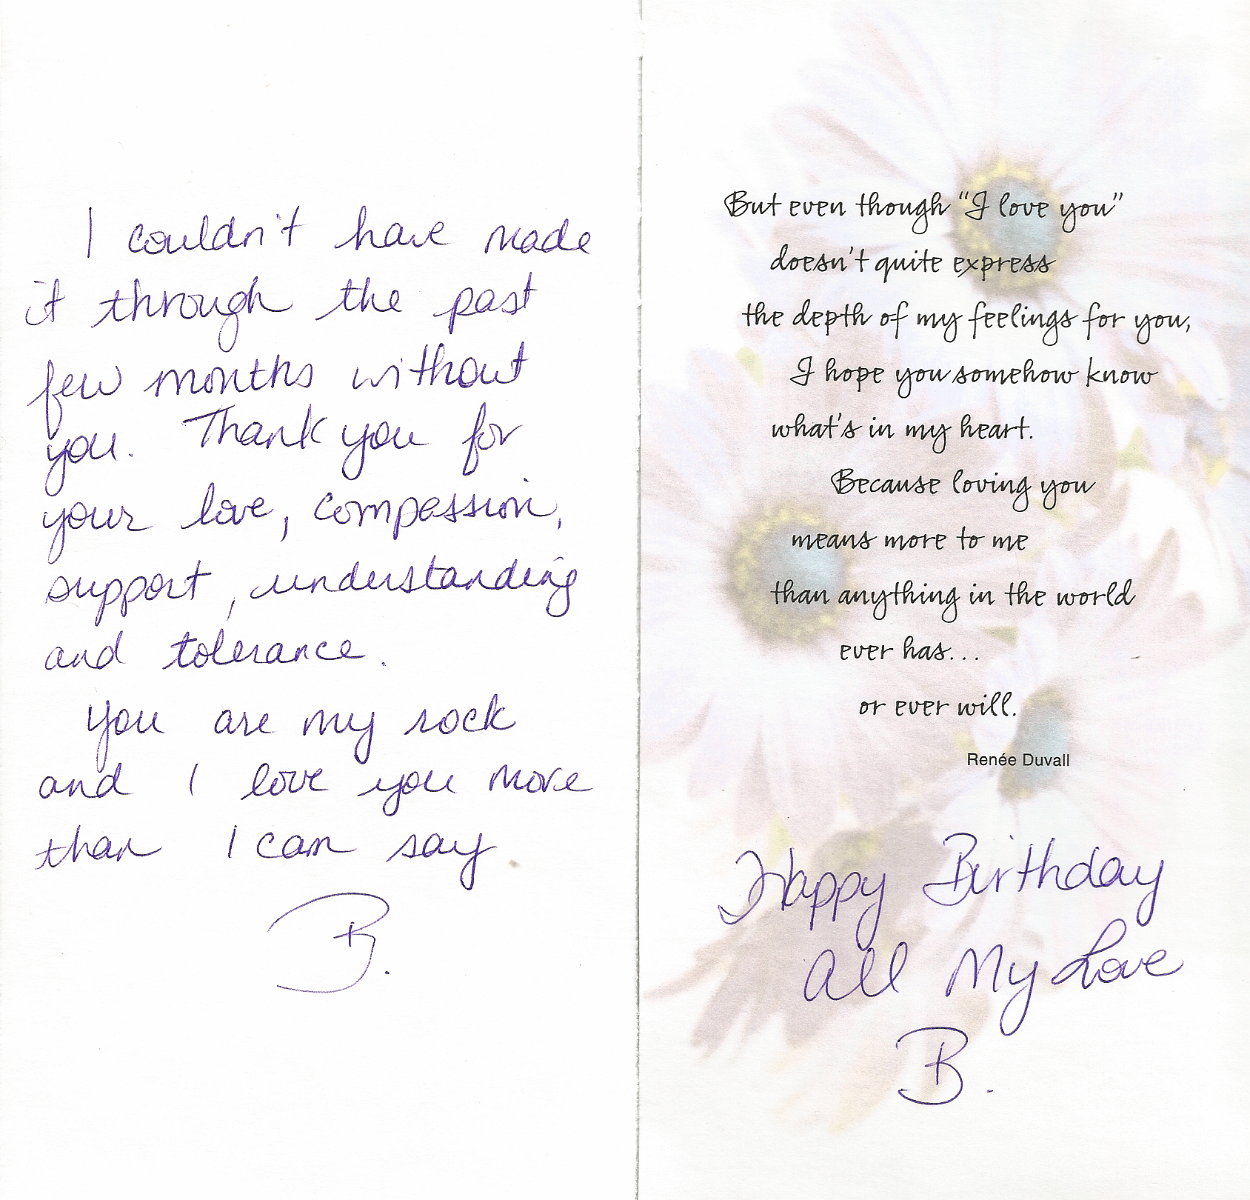 I couldn't have made
it through the past
few months without
you. Thank you for
your love, compassion,
support, understanding
and tolerance.
You are my rock
and I love you more
than I can say.
B.
But even though “I love you”
doesn't quite express
the depth of my feelings for you,
I hope you somehow know
what's in my heart.
Because loving you
means more to me
than anything in the world
ever has...
or ever will.
Renée Duvall
Happy Birthday
All My Love
B.